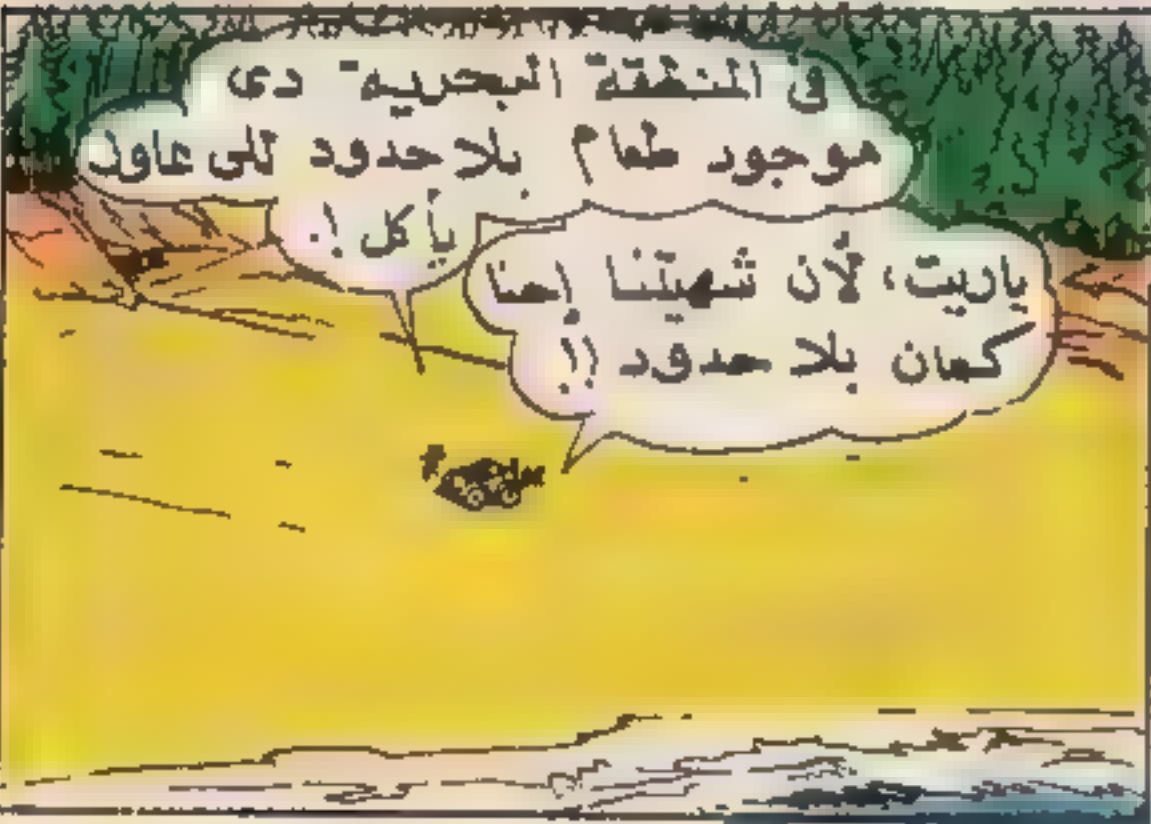 فى المنطقة البحرية دى
موجود طعام بلا حدود للى عاوز
يأكل !.
ياريت، لأن شهيتنا إحنا
كمان بلا حدود !!.